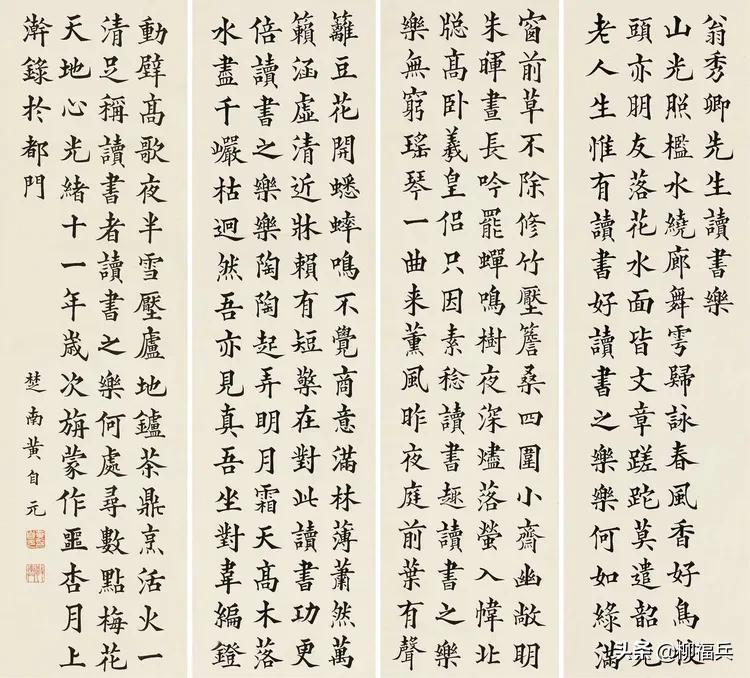 翁秀卿先生讀書樂
山光照檻水繞廊舞雩歸詠春風香好鳥枝
頭亦朋友落花水面皆文章蹉跎莫遣韶光
老人生惟有讀書好讀書之樂樂何如綠滿
窗前草不除修竹壓簷桑四圍小齋幽敞明
朱暉晝長吟罷蟬鳴樹夜深燼落螢入幃北
牎高卧羲皇侣只因素稔讀書趣讀書之樂
樂無窮瑤琴一曲来薰風昨夜庭前葉有聲
籬豆花開蟋蟀鳴不覺商意滿林薄蕭然萬
籟涵虛清近牀賴有短檠在對此讀書功更
倍讀書之樂樂陶陶起弄明月霜天高木落
水盡千巗枯迥然吾亦見真吾坐對韋編鐙
動壁高歌夜半雪壓廬地鑪茶鼎烹活火一
清足稱讀書者讀書之樂何處尋數點梅花
天地心光緒十一年歲次旃蒙作噩杏月上
澣錄於都門
楚南黄自元
头条 @柳福兵